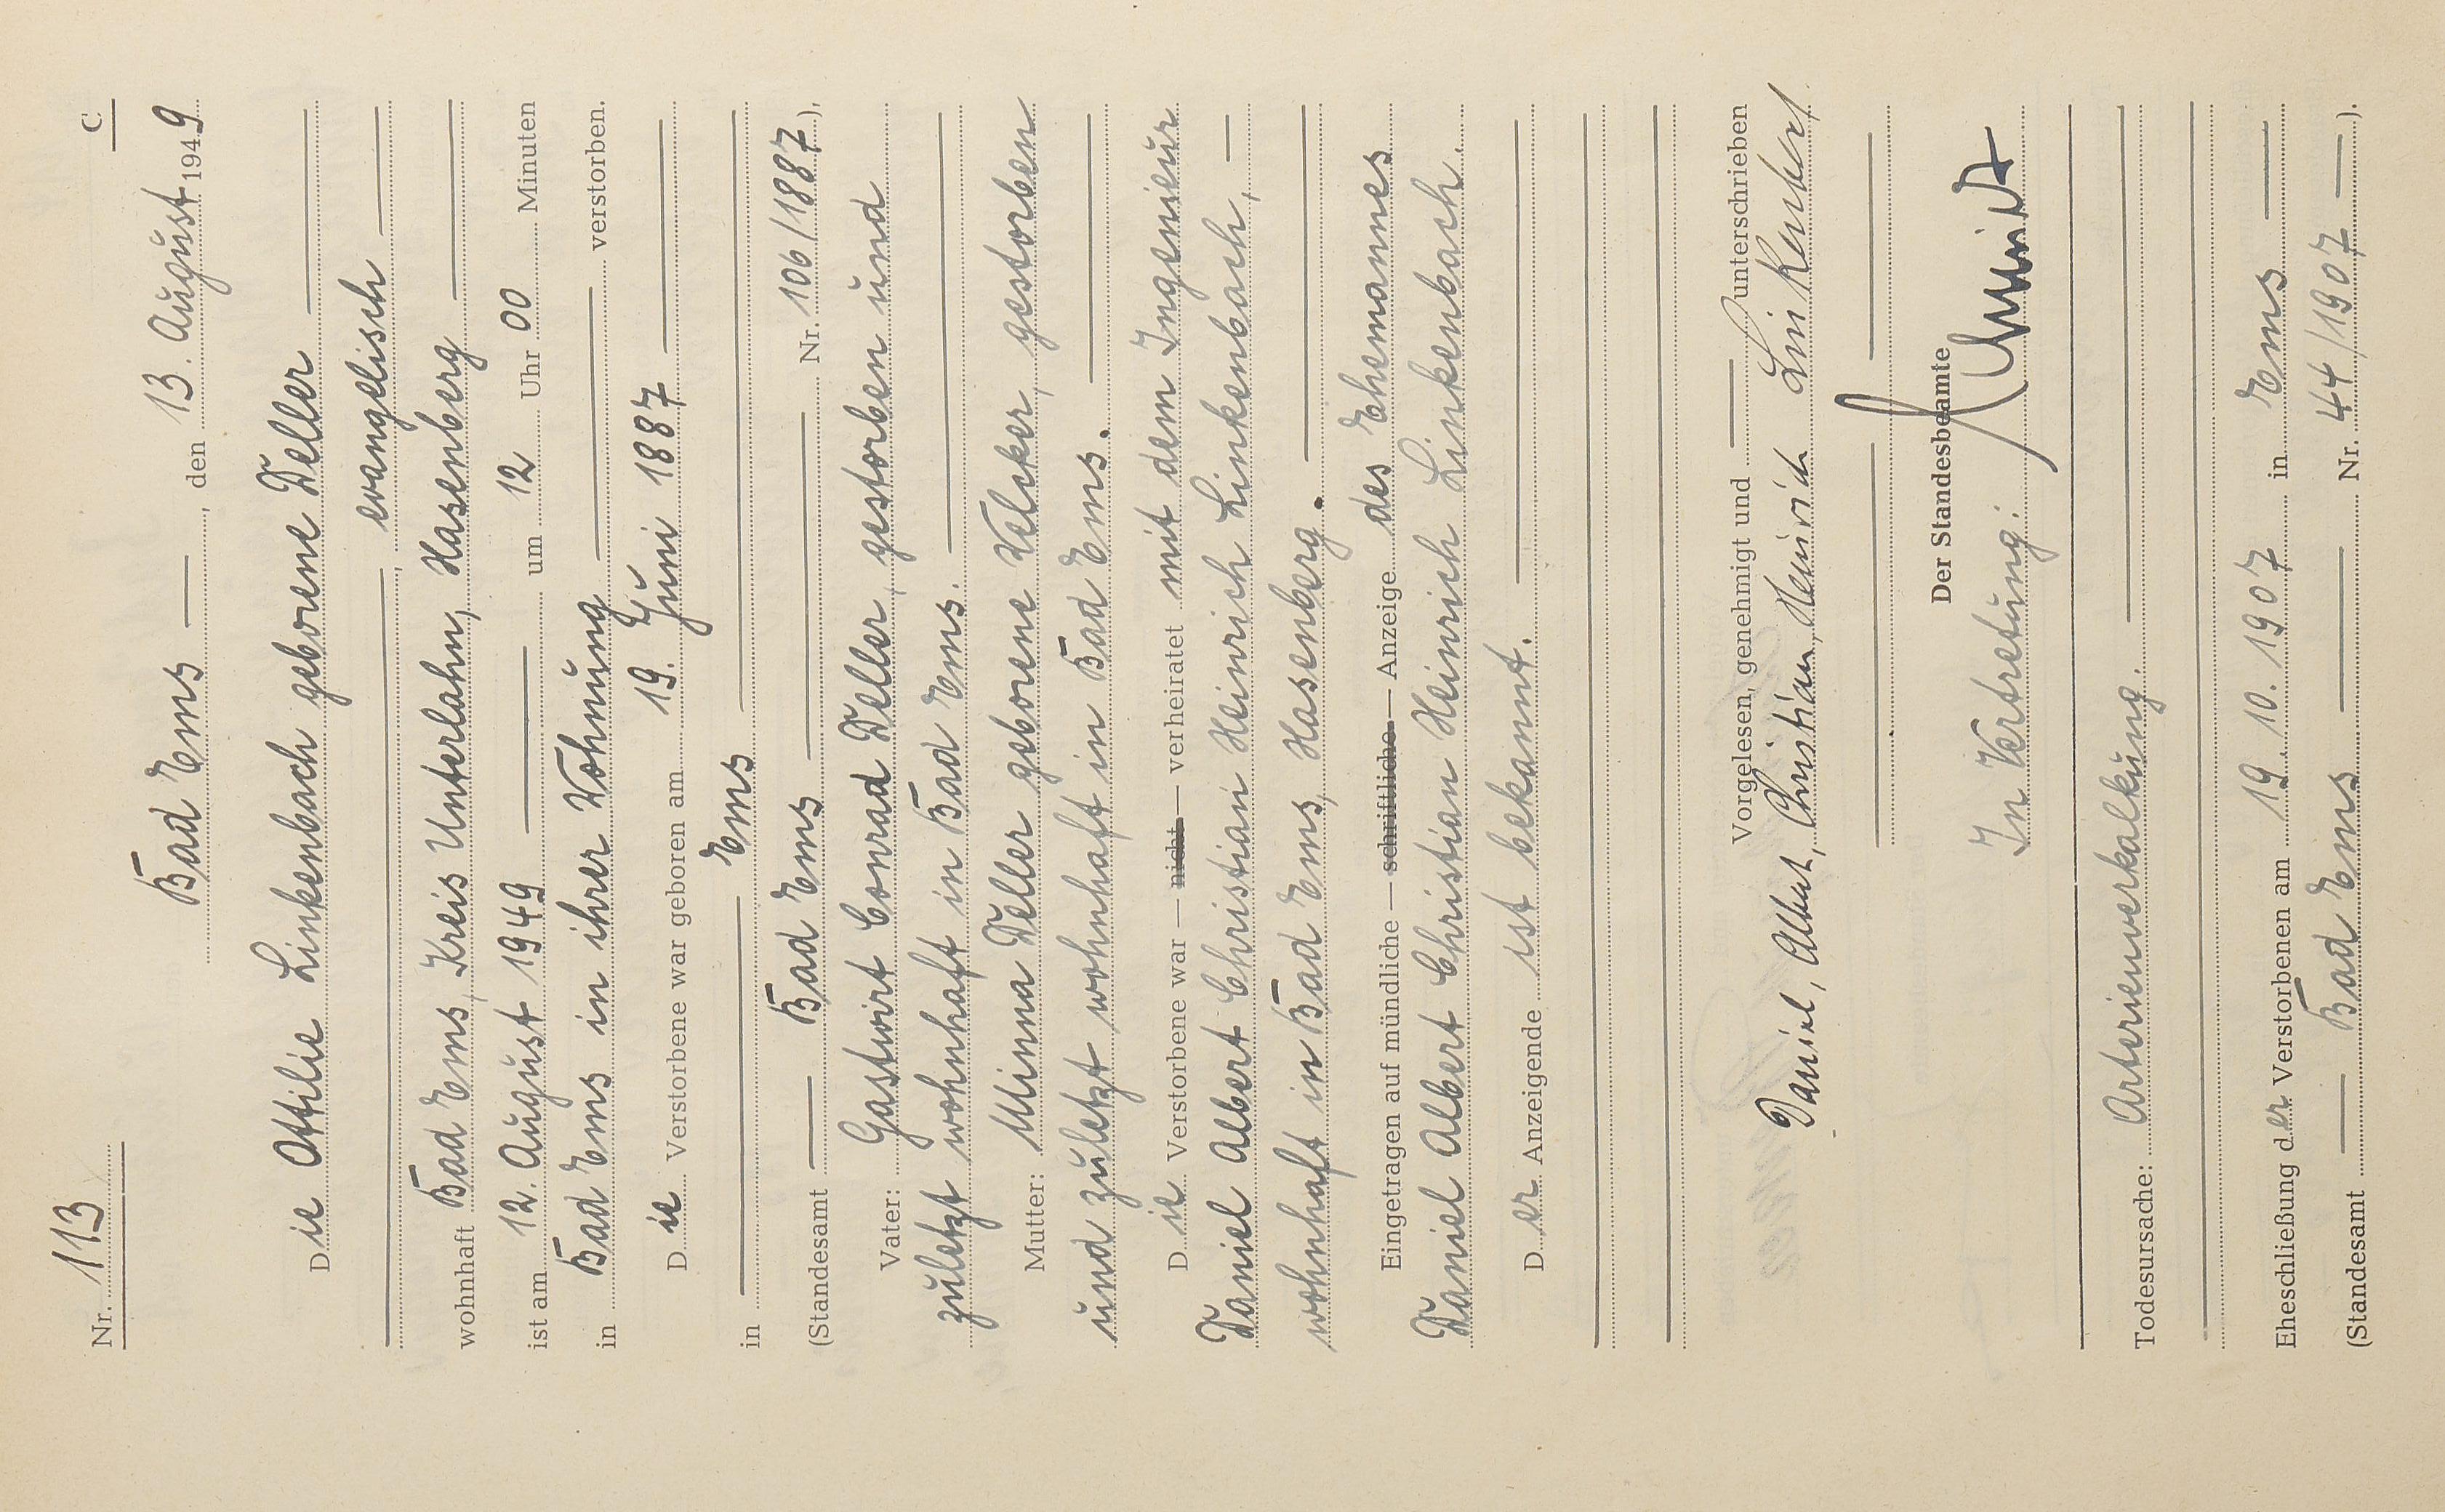 Nr. 113 C
Bad Ems — , den 13. August 1949
Die Ottilie Linkenbach geborene Deller —
—, evangelisch —
wohnhaft Bad Ems, Kreis Unterlahn, Hasenberg —
ist am 12. August 1949 — um 12 Uhr 00 Minuten
in Bad Ems in ihrer Wohnung — verstorben.
Die Verstorbene war geboren am 19. Juni 1887 —
in — Ems —
(Standesamt — Bad Ems — Nr. 106/1887),
Vater: Gastwirt Conrad Deller, gestorben und
zuletzt wohnhaft in Bad Ems. —
Mutter: Minna Deller geborene Velcker, gestorben
und zuletzt wohnhaft in Bad Ems. —
Die Verstorbene war — nicht — verheiratet mit dem Ingenieur
Daniel Albert Christian Heinrich Linkenbach, —
wohnhaft in Bad Ems, Hasenberg. —
Eingetragen auf mündliche — schriftliche — Anzeige des Ehemannes
Daniel Albert Christian Heinrich Linkenbach.
Der Anzeigende ist bekannt. —
Vorgelesen, genehmigt und — unterschrieben
Daniel, Albert, Christian, Heinrich
Der Standesbeamte
In Vertretung:
Todesursache: Arterienverkalkung. —
Eheschließung der Verstorbenen am 19. 10. 1907 in Ems —
(Standesamt — Bad Ems — Nr. 44/1907 —).